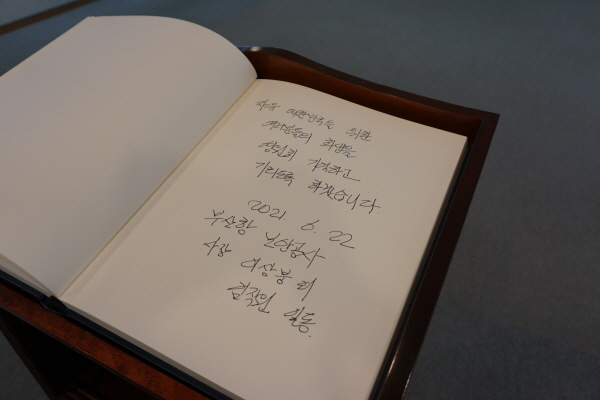 자유 대한민국을 위한
여러분들의 희생을
영원히 기억하고
기리도록 하겠습니다.
2021. 6. 22
부산항 보안공사
사장 이상붕 외
임직원 일동.